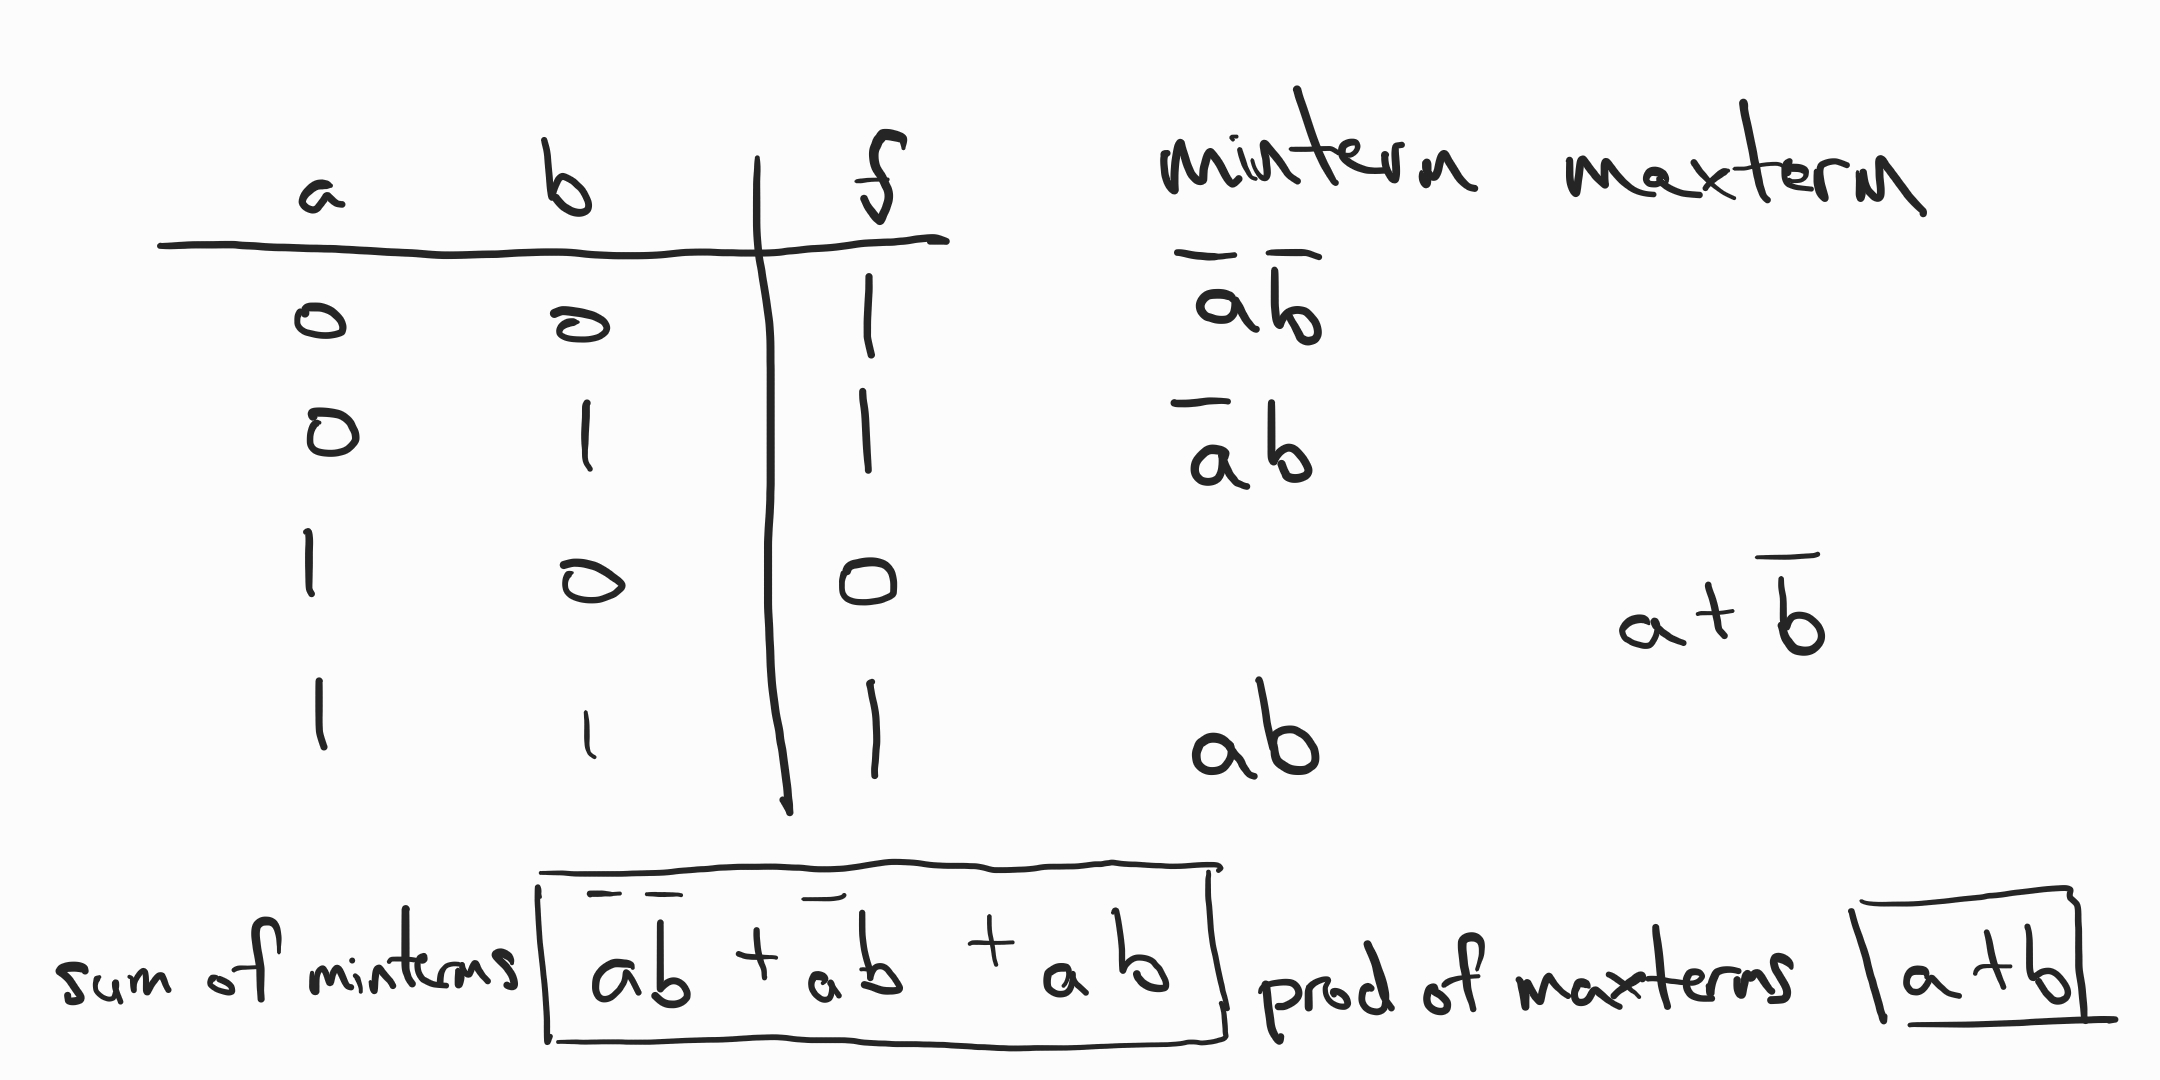 a b f minterm maxterm
0 0 1 a̅ b̅
0 1 1 a̅ b
1 0 0 a + b̅
1 1 1 a b
sum of minterms a̅ b̅ + a̅ b + a b prod of maxterms a + b